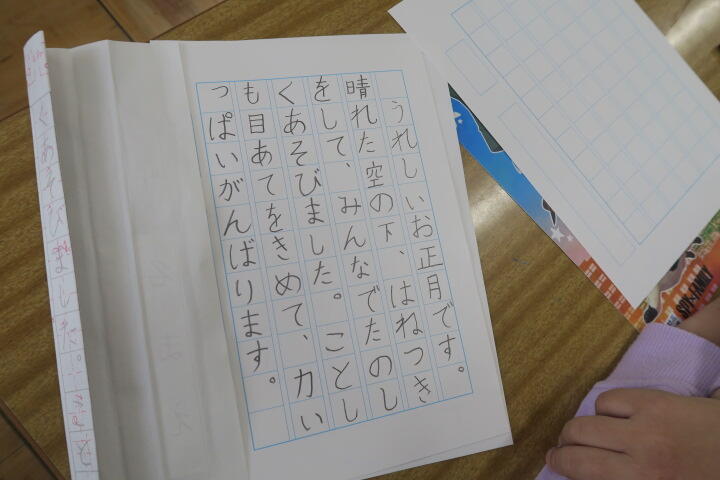 うれしいお正月です。
晴れた空の下、はねつき
をして、みんなでたのし
くあそびました。ことし
も目あてをきめて、力い
っぱいがんばります。
くあそびました。
SPY×FAMILY